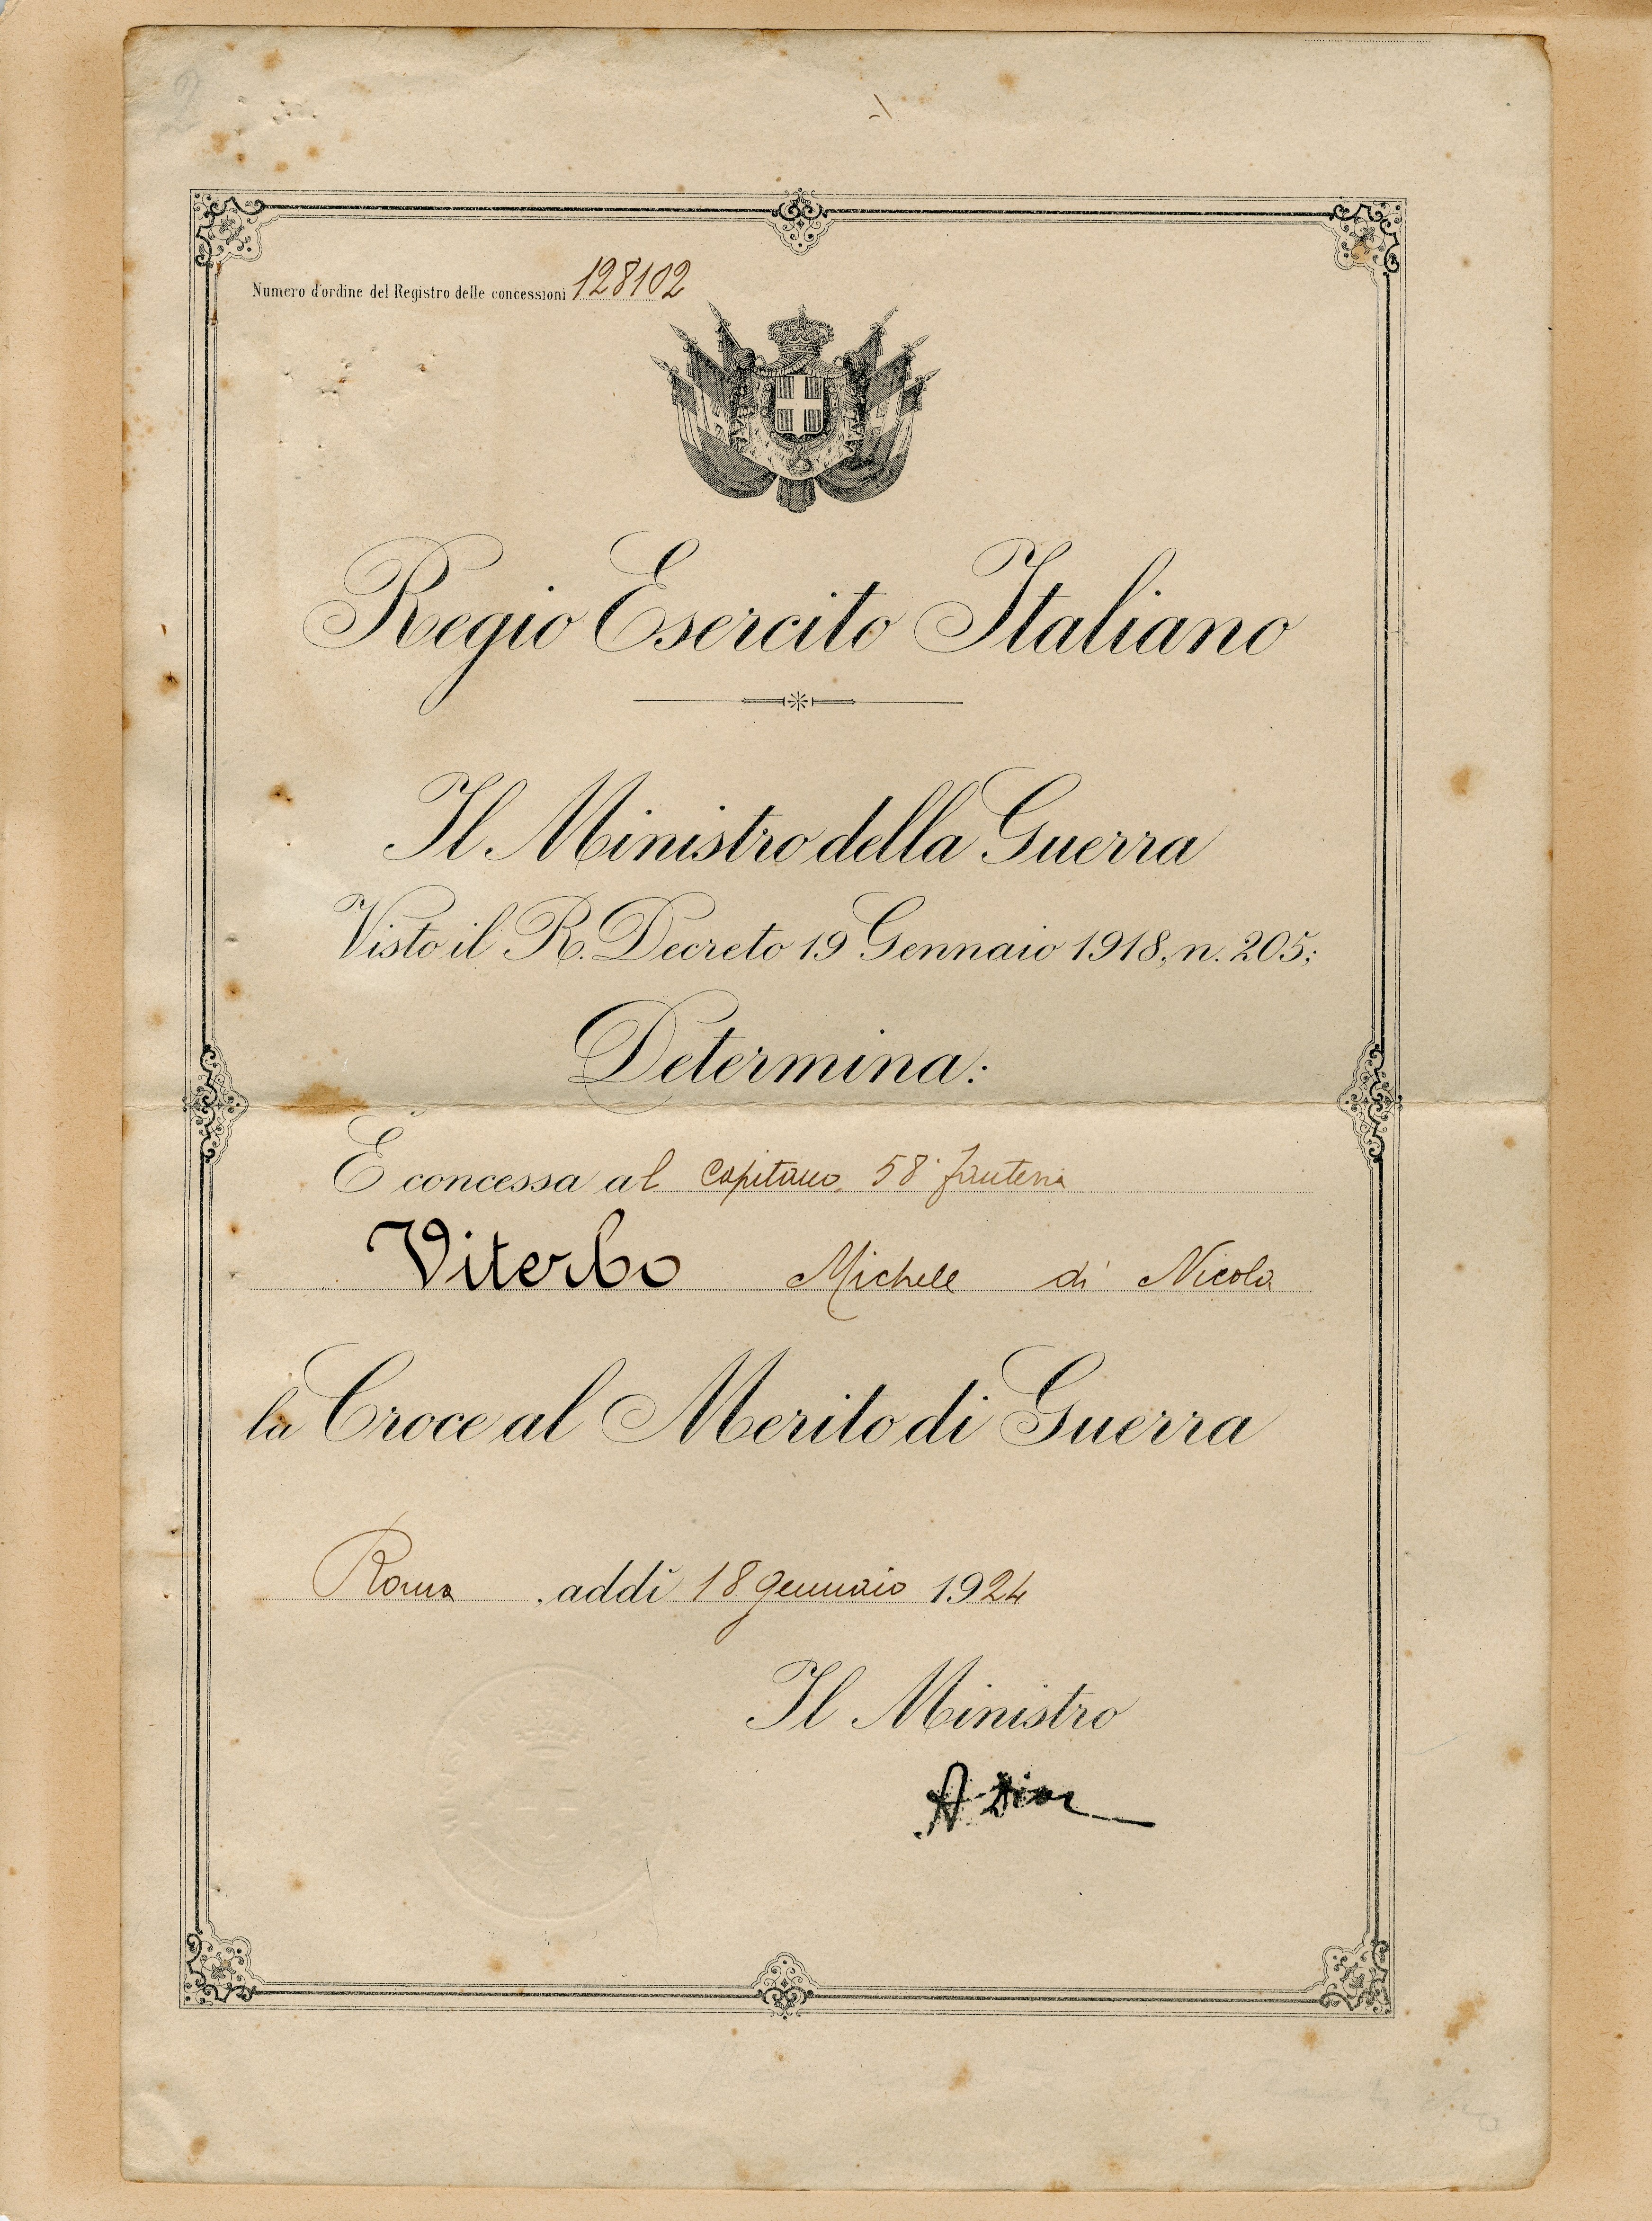 Numero d'ordine del Registro delle concessioni 128102
Regio Esercito Italiano
Il Ministro della Guerra
Visto il R. Decreto 19 Gennaio 1918, n. 205;
Determina:
È concessa al capitano 58° fanteria
Viterbo Michele di Nicola
la Croce al Merito di Guerra
Roma, addì 18 gennaio 1924
Il Ministro
A. Diaz